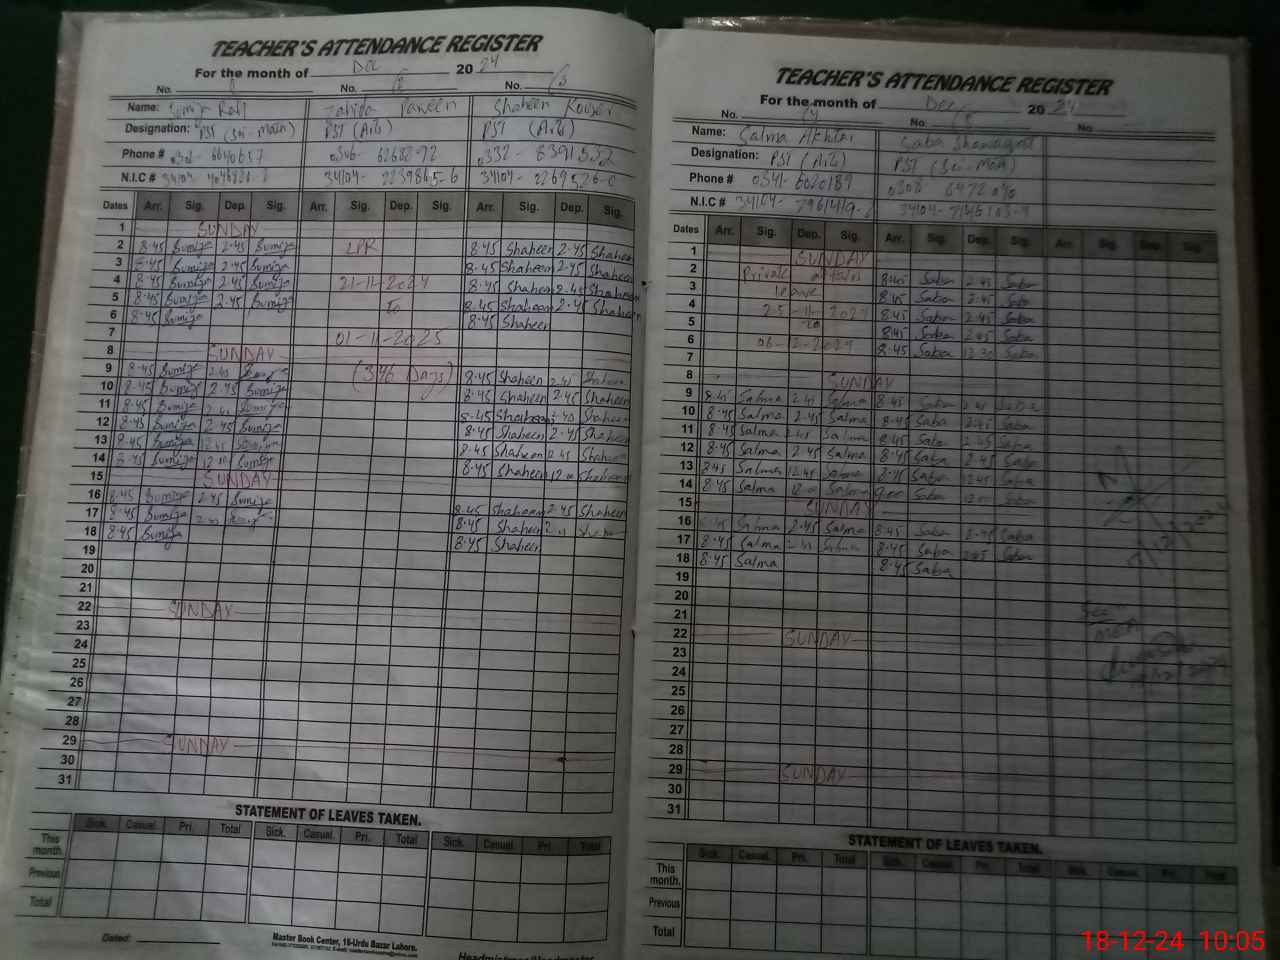 TEACHER'S ATTENDANCE REGISTER
For the month of Dec 2024
No. No. No.
Name: Zahida Parveen Shaheen Kouser
Designation: PST (Sci-Math) PST (Arts) PST (Arts)
Phone # 0332-8391532
N.I.C # 34104- 34104-2239865-6 34104-2269526-0
Dates Arr. Sig. Dep. Sig. Arr. Sig. Dep. Sig. Arr. Sig. Dep. Sig.
1 SUNDAY
2 8.45 Sumija 2.45 Sumija LPR 8.45 Shaheen 2.45 Shaheen
3 8.45 Sumija 2.45 Sumija 8.45 Shaheen 2.45 Shaheen
4 8.45 Sumija 2.45 Sumija 21-11-2024 8.45 Shaheen 2.45 Shaheen
5 8.45 Sumija 2.45 Sumija To 8.45 Shaheen 2.45 Shaheen
6 8.45 Sumija 8.45 Shaheen
7 01-11-2025
8 SUNDAY
9 8.45 Sumija 2.45 (346 Days) 8.45 Shaheen 2.45 Shaheen
10 8.45 Sumija 2.45 Sumija 8.45 Shaheen 2.45 Shaheen
11 8.45 Sumija 2.45 Sumija 8.45 Shaheen Shaheen
12 8.45 Sumija 2.45 Sumija 8.45 Shaheen 2.45 Shaheen
13 8.45 Sumija 12.45 Sumija 8.45 Shaheen 12.45 Shaheen
14 8.45 Sumija 12.00 Sumija 8.45 Shaheen 12.00 Shaheen
15 SUNDAY
16 8.45 Sumija 2.45 Sumija 8.45 Shaheen 2.45 Shaheen
17 8.45 Sumija 8.45 Shaheen Shaheen
18 8.45 Sumija 8.45 Shaheen
19
20
21
22 SUNDAY
23
24
25
26
27
28
29 SUNDAY
30
31
STATEMENT OF LEAVES TAKEN.
Sick. Casual. Pri. Total Sick. Casual. Pri. Total Sick. Casual. Pri. Total
This month.
Previous
Total
Dated:
Master Book Center, 16-Urdu Bazar Lahore.
Headmistress/Headmaster
TEACHER'S ATTENDANCE REGISTER
For the month of Dec 2024
No. No. No.
Name: Salma Akhtar Saba
Designation: PST (Arts) PST (Sci-Math)
Phone # 0341-6020189
N.I.C # 34104- 34104-
Dates Arr. Sig. Dep. Sig. Arr. Sig. Dep. Sig. Arr. Sig. Dep. Sig.
1 SUNDAY
2 Private 8.45 Saba 2.45 Saba
3 leave 8.45 Saba 2.45 Saba
4 25-11-2024 8.45 Saba 2.45 Saba
5 To 8.45 Saba 2.45 Saba
6 06-12-2024 8.45 Saba 12.30 Saba
7
8 SUNDAY
9 8.45 Salma 2.45 Salma 8.45 Saba 2.45 Saba
10 8.45 Salma 2.45 Salma 8.45 Saba 2.45 Saba
11 8.45 Salma 2.45 Salma 8.45 Saba 2.45 Saba
12 8.45 Salma 2.45 Salma 8.45 Saba 2.45 Saba
13 8.45 Salma 12.45 Salma 8.45 Saba 12.45 Saba
14 8.45 Salma 12.00 Salma 9.00 Saba 12.00 Saba
15 SUNDAY
16 8.45 Salma 2.45 Salma 8.45 Saba 2.45 Saba
17 8.45 Salma 2.45 Salma 8.45 Saba 2.45 Saba
18 8.45 Salma 8.45 Saba
19
20
21
22 SUNDAY
23
24
25
26
27
28
29 SUNDAY
30
31
STATEMENT OF LEAVES TAKEN.
Sick. Casual. Pri. Total Sick. Casual. Pri. Total Sick. Casual. Pri. Total
This month.
Previous
Total
18-12-24 10:05